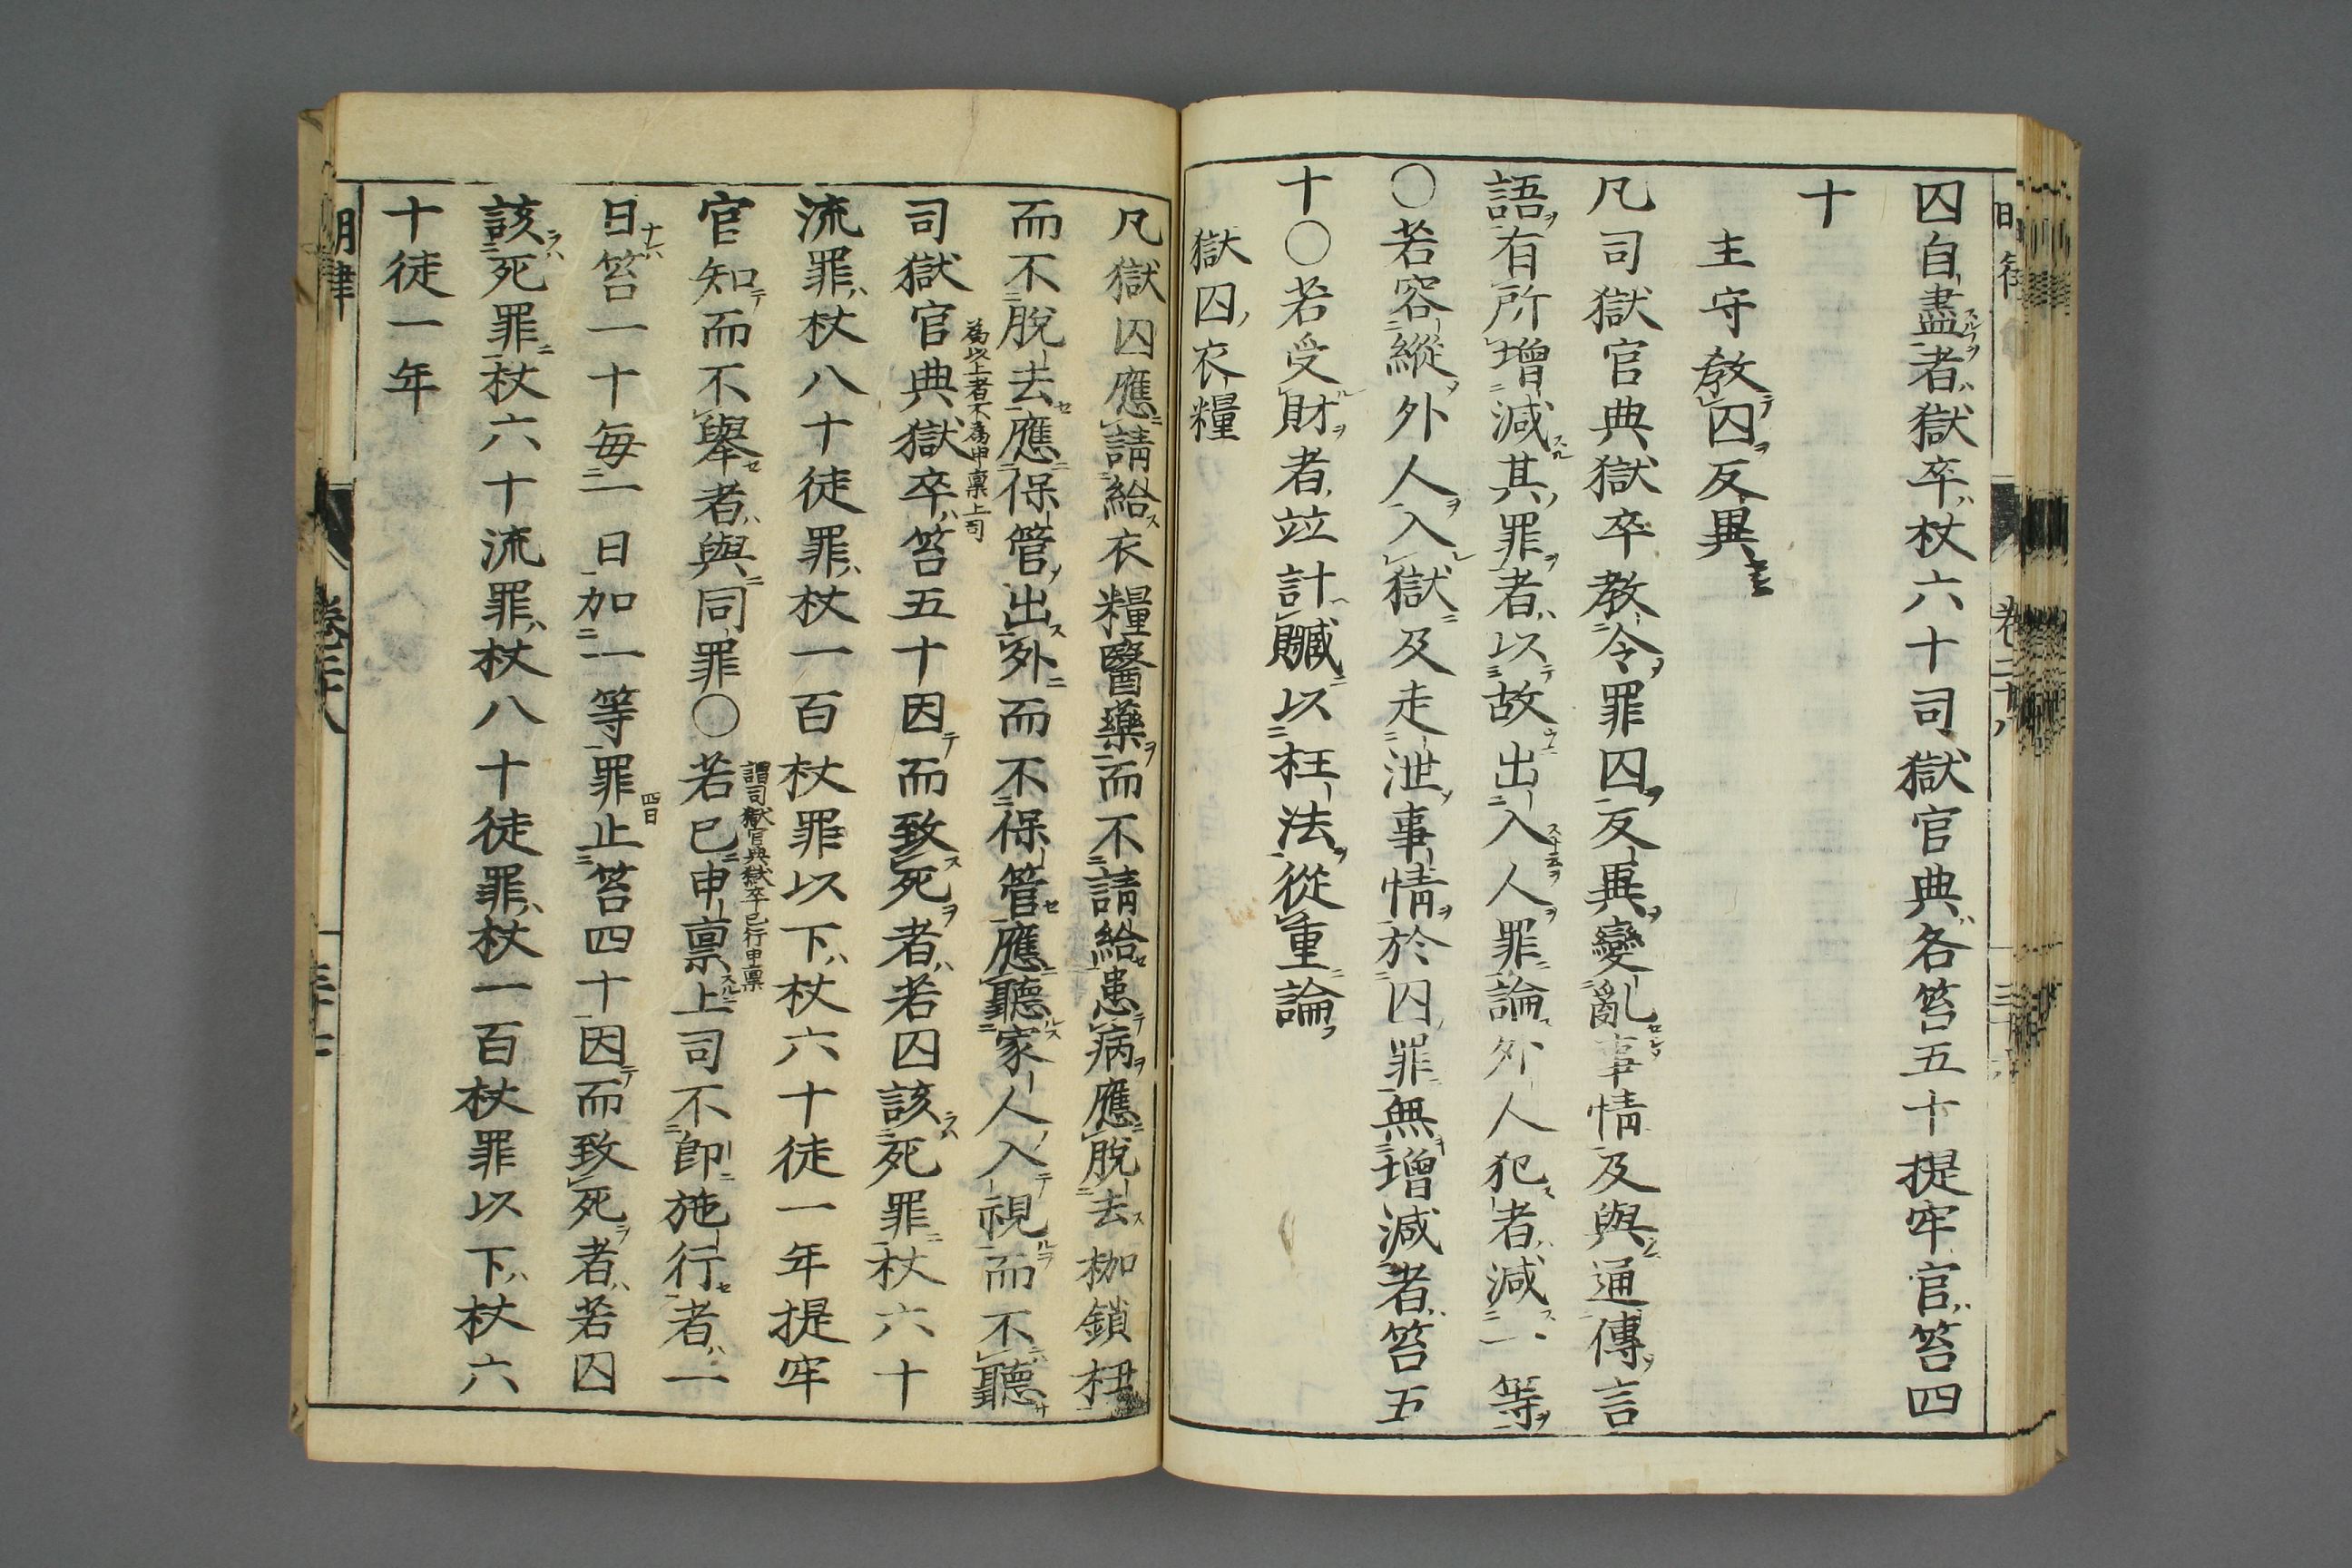 囚自盡者獄卒杖六十司獄官典各笞五十提牢官笞四
十
主守教囚反異
凡司獄官典獄卒教令罪囚反異變亂事情及與通傳言
語有所增減其罪者以故出入人罪論外人犯者減一等
○若容縱外人入獄及走泄事情於囚罪無增減者笞五
十○若受財者竝計贓以枉法從重論
獄囚衣糧
凡獄囚應請給衣糧醫藥而不請給患病應脫去枷鎖杻
而不脫去應保管出外而不保管應聽家人入視而不聽
為以上者不為申稟上司
司獄官典獄卒笞五十因而致死者若囚該死罪杖六十
流罪杖八十徒罪杖一百杖罪以下杖六十徒一年提牢
官知而不舉者與同罪○若已申稟上司不即施行者一
謂司獄官典獄卒已行申稟
日笞一十每一日加一等罪止笞四十因而致死者若囚
四日
該死罪杖六十流罪杖八十徒罪杖一百杖罪以下杖六
十徒一年